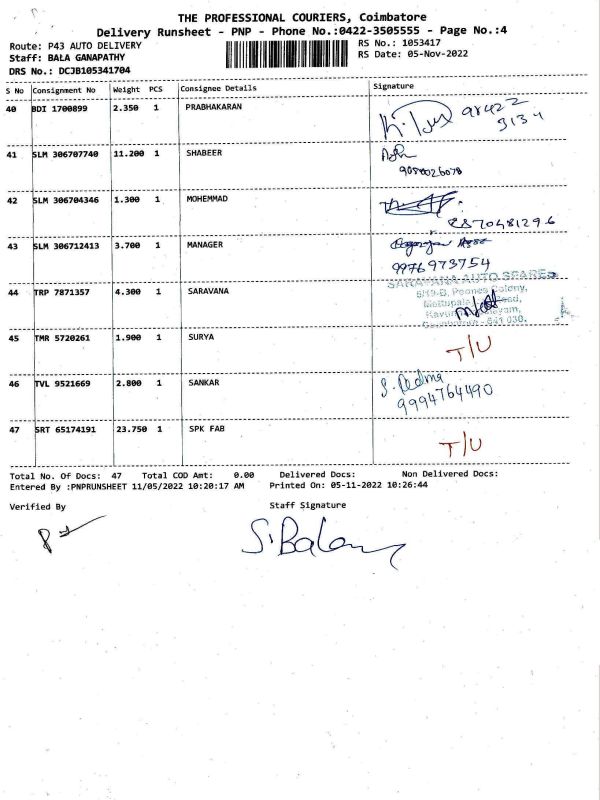 THE PROFESSIONAL COURIERS, Coimbatore
Delivery Runsheet - PNP - Phone No.:0422-3505555 - Page No.:4
Route: P43 AUTO DELIVERY RS No.: 1053417
Staff: BALA GANAPATHY RS Date: 05-Nov-2022
DRS No.: DCJB105341704
S No Consignment No Weight PCS Consignee Details Signature
40 BDI 1700899 2.350 1 PRABHAKARAN
41 SLM 306707740 11.200 1 SHABEER
9080026078
42 SLM 306704346 1.300 1 MOHEMMAD
8870481296
43 SLM 306712413 3.700 1 MANAGER
9976973754
SARAVANA AUTO SPARES
44 TRP 7871357 4.300 1 SARAVANA
45 TMR 5720261 1.900 1 SURYA
T/U
46 TVL 9521669 2.800 1 SANKAR
9994764490
47 SRT 65174191 23.750 1 SPK FAB
T/U
Total No. Of Docs: 47 Total COD Amt: 0.00 Delivered Docs: Non Delivered Docs:
Entered By :PNPRUNSHEET 11/05/2022 10:20:17 AM Printed On: 05-11-2022 10:26:44
Verified By Staff Signature